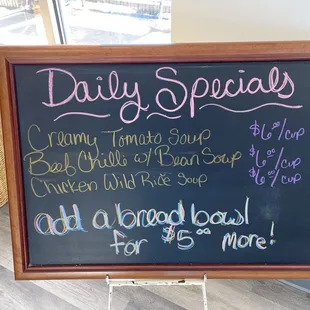 Daily Specials
Creamy Tomato Soup $6.00/cup
Beef Chilli w/ Bean Soup $6.00/cup
Chicken Wild Rice Soup $6.00/cup
add a bread bowl
for $5.00 more!